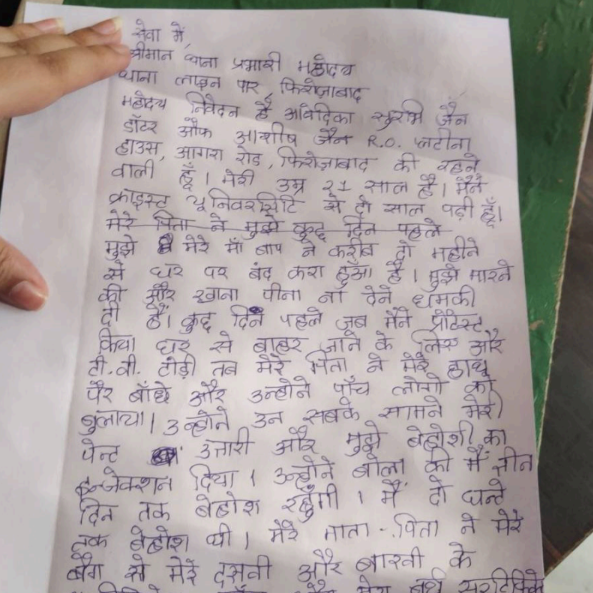 सेवा में,
श्रीमान थाना प्रभारी महोदय
थाना लाइन पार, फिरोजाबाद
महोदय निवेदन है आवेदिका सुरभि जैन
डॉटर ऑफ आशीष जैन R.O. जटीना
हाउस, आगरा रोड, फिरोजाबाद की रहने
वाली हूँ। मेरी उम्र २१ साल है। मैंने
क्राइस्ट यूनिवर्सिटि से दो साल पढ़ी हूँ।
मेरे पिता ने मुझे कुछ दिन पहले
मुझे मेरे माँ बाप ने करीब दो महीने
से घर पर बंद करा हुआ है। मुझे मारने
की और खाना पीना ना देने धमकी
दी है। कुछ दिन पहले जब मैंने प्रोटेस्ट
किया घर से बाहर जाने के लिए और
टी.वी. तोड़ी तब मेरे पिता ने मेरे हाथ
पैर बाँधे और उन्होंने पाँच लोगो को
बुलाया। उन्होंने उन सबके सामने मेरी
पेन्ट उतारी और मुझे बेहोशी का
इन्जेक्शन दिया। उन्होंने बोला की मैं तीन
दिन तक बेहोश रहुँगी। मैं दो घन्टे
तक बेहोश थी। मेरे माता-पिता ने मेरे
बैग से मेरे दसवी और बारवी के
और मेरा बर्थ सर्टिफिके